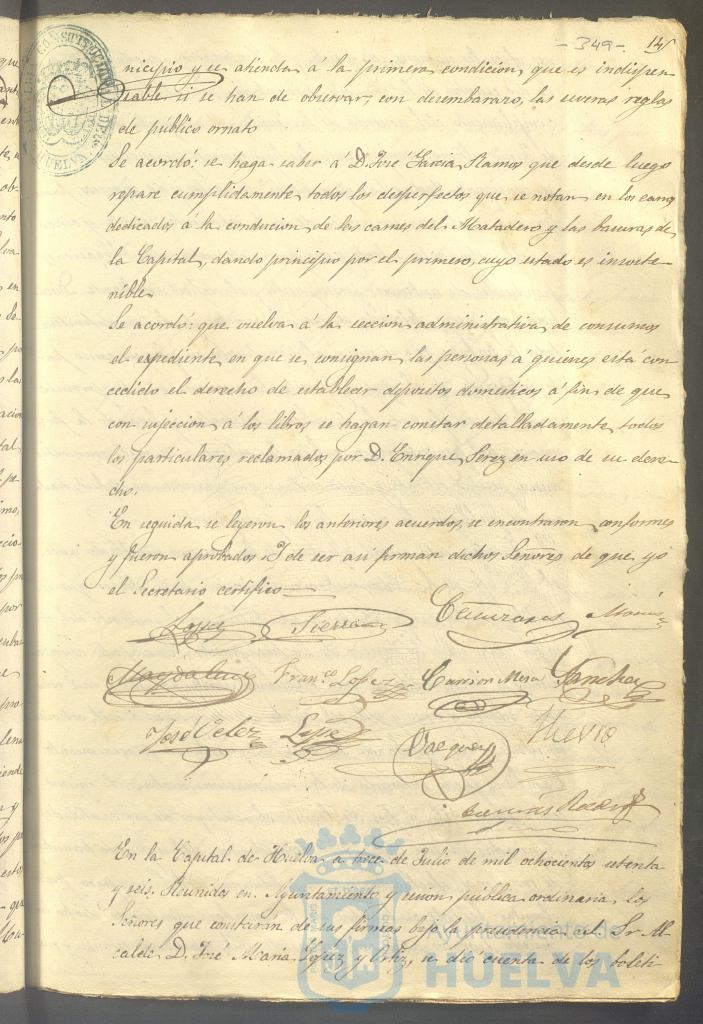 - 349 -. 14
nicipio y se atienda á la primera condicion, que es indispen
sable si se han de observar, con desembarazo, las severas reglas
de público ornato
Se acordó: se haga saber á D. José Garcia Ramos que desde luego
repare cumplidamente todos los desperfectos que se notan en los carros
dedicados á la conduccion de las carnes del Matadero y las basuras de
la Capital, dando principio por el primero, cuyo estado es insoste
nible.
Se acordó: que vuelva á la seccion administrativa de consumos
el espediente en que se consignan las personas á quienes está con
cedido el derecho de establecer depositos domesticos á fin de que
con sujeccion á los libros se hagan constar detalladamente todos
los particulares reclamados por D. Enrique Perez en uso de su dere-
cho.
En seguida se leyeron los anteriores acuerdos, se encontraron conformes
y fueron aprobados. Y de ser asi firman dichos Señores de que yo
el Secretario certifico
Lopez Sierra
Magdalena Franco. Lopez Carrion Mesa Sanchez
José Velez Lopez Vazquez
En la Capital de Huelva a trece de Julio de mil ochocientos setenta
y seis. Reunidos en Ayuntamiento y sesion pública ordinaria, los
Señores que constarán de sus firmas bajo la presidencia del Sr. Al
calde D. José Maria Lopez y Ortiz, se dió cuenta de los boleti
Ayuntamiento de
HUELVA